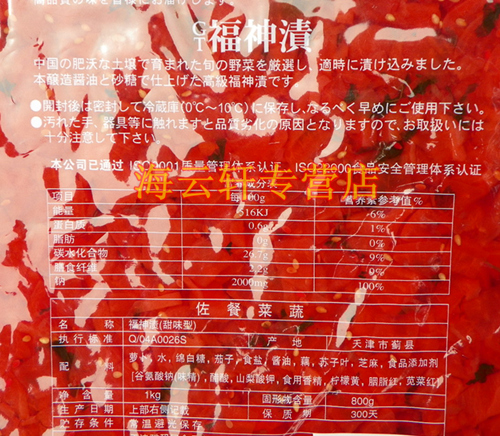 高品質の味を皆様にお届けします。
GT福神漬
中国の肥沃な土壌で育まれた旬の野菜を厳選し、適時に漬け込みました。
本醸造醤油と砂糖で仕上げた高級福神漬です
●開封後は密封して冷蔵庫(0℃~10℃)に保存し、なるべく早めにご使用下さい。
●汚れた手、器具等に触れますと品質劣化の原因となりますので、お取扱いには
十分注意して下さい。
本公司已通过 ISO9001质量管理体系认证 ISO22000食品安全管理体系认证
海云轩专营店
项目 每100g 营养素参考值%
能量 516KJ 6%
蛋白质 0.6g 1%
脂肪 0g 0%
碳水化合物 26.7g 9%
膳食纤维 2.2g 0%
钠 2000mg 100%
佐餐菜蔬
名称 福神渍(甜味型)
执行标准 Q/04A0026S 产地 天津市蓟县
配料 萝卜,水,绵白糖,茄子,食盐,酱油,藕,苏子叶,芝麻,食品添加剂
[谷氨酸钠(味精),醋酸,山梨酸钾,食用香精,柠檬黄,胭脂红,苋菜红]
净含量 1kg 固形物含量 800g
生产日期 上部右侧记载 保质期 300天
贮存条件 常温避光保存